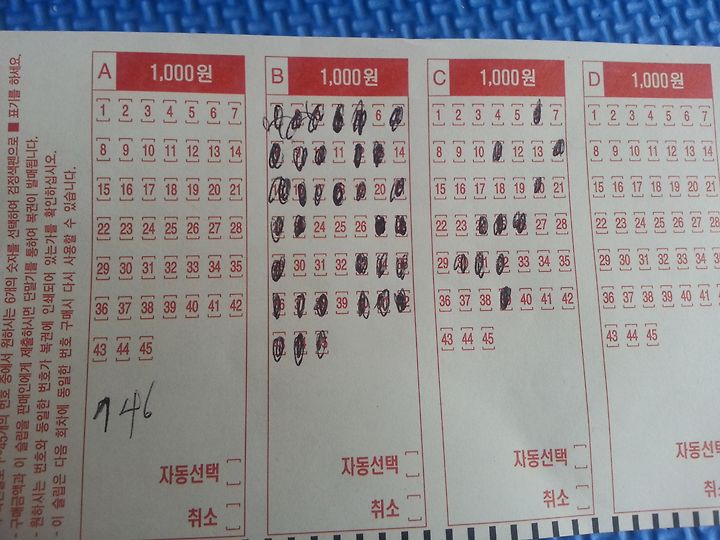 45개의 번호 중에서 원하시는 6개의 숫자를 선택하여 검정색펜으로 ■ 표기를 하세요.
- 구매금액과 이 슬립을 판매인에게 제출하시면 단말기를 통하여 복권이 발매됩니다.
- 원하시는 번호와 동일한 번호가 복권에 인쇄되어 있는가를 확인하십시오.
- 이 슬립은 다음 회차에 동일한 번호 구매시 다시 사용할 수 있습니다.
A 1,000원
1 2 3 4 5 6 7
8 9 10 11 12 13 14
15 16 17 18 19 20 21
22 23 24 25 26 27 28
29 30 31 32 33 34 35
36 37 38 39 40 41 42
43 44 45
746
자동선택
취소
B 1,000원
6
11 14
20
24 25 26
30 31 32
39
자동선택
취소
C 1,000원
1 2 3 4 5 7
8 9 10 11 12 13
15 16 17 18 19 21
22 23 27 28
29 33 34 35
36 37 38 40 41 42
43 44 45
자동선택
취소
D 1,000원
1 2 3 4 5 6 7
8 9 10 11 12 13
15 16 17 18 19 20
22 23 24 25 26 27
29 30 31 32 33 34
36 37 38 39 40 41
43 44 45
자동선택
취소